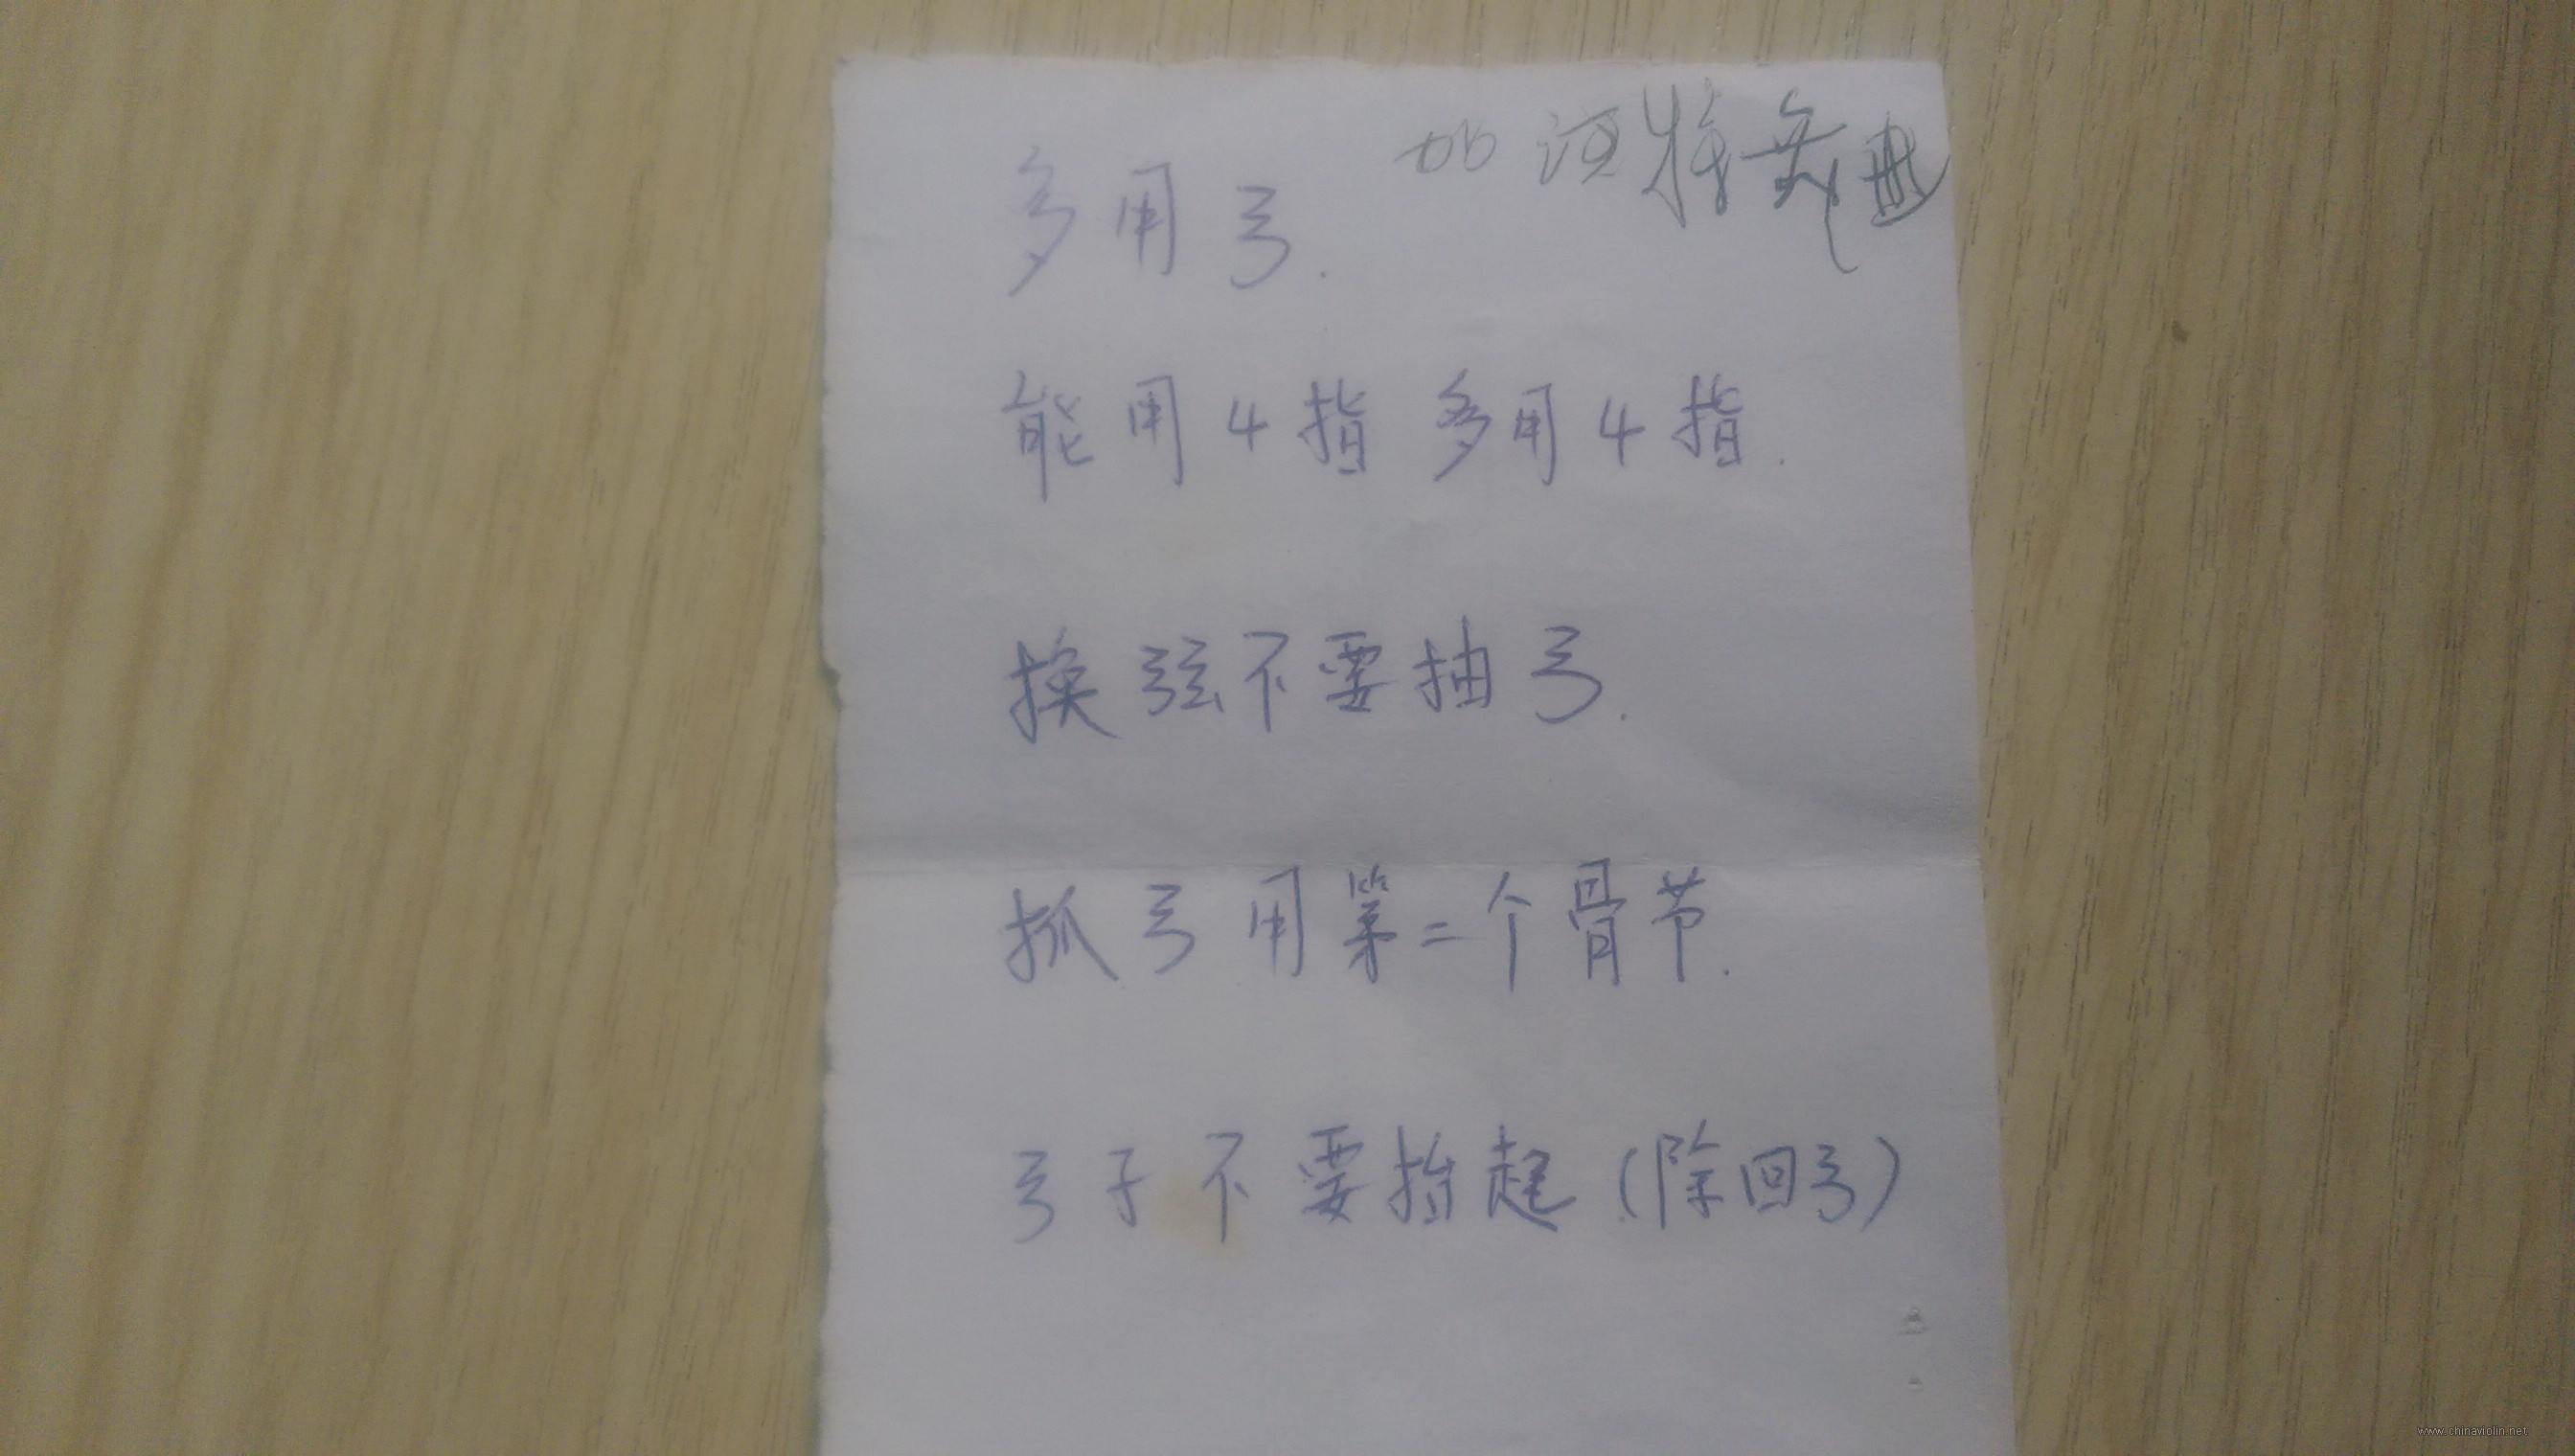 加沃特舞曲
多用弓.
能用4指多用4指.
换弦不要抽弓.
抓弓用第二个骨节.
弓子不要抬起(除回弓)
www.chinaviolin.net